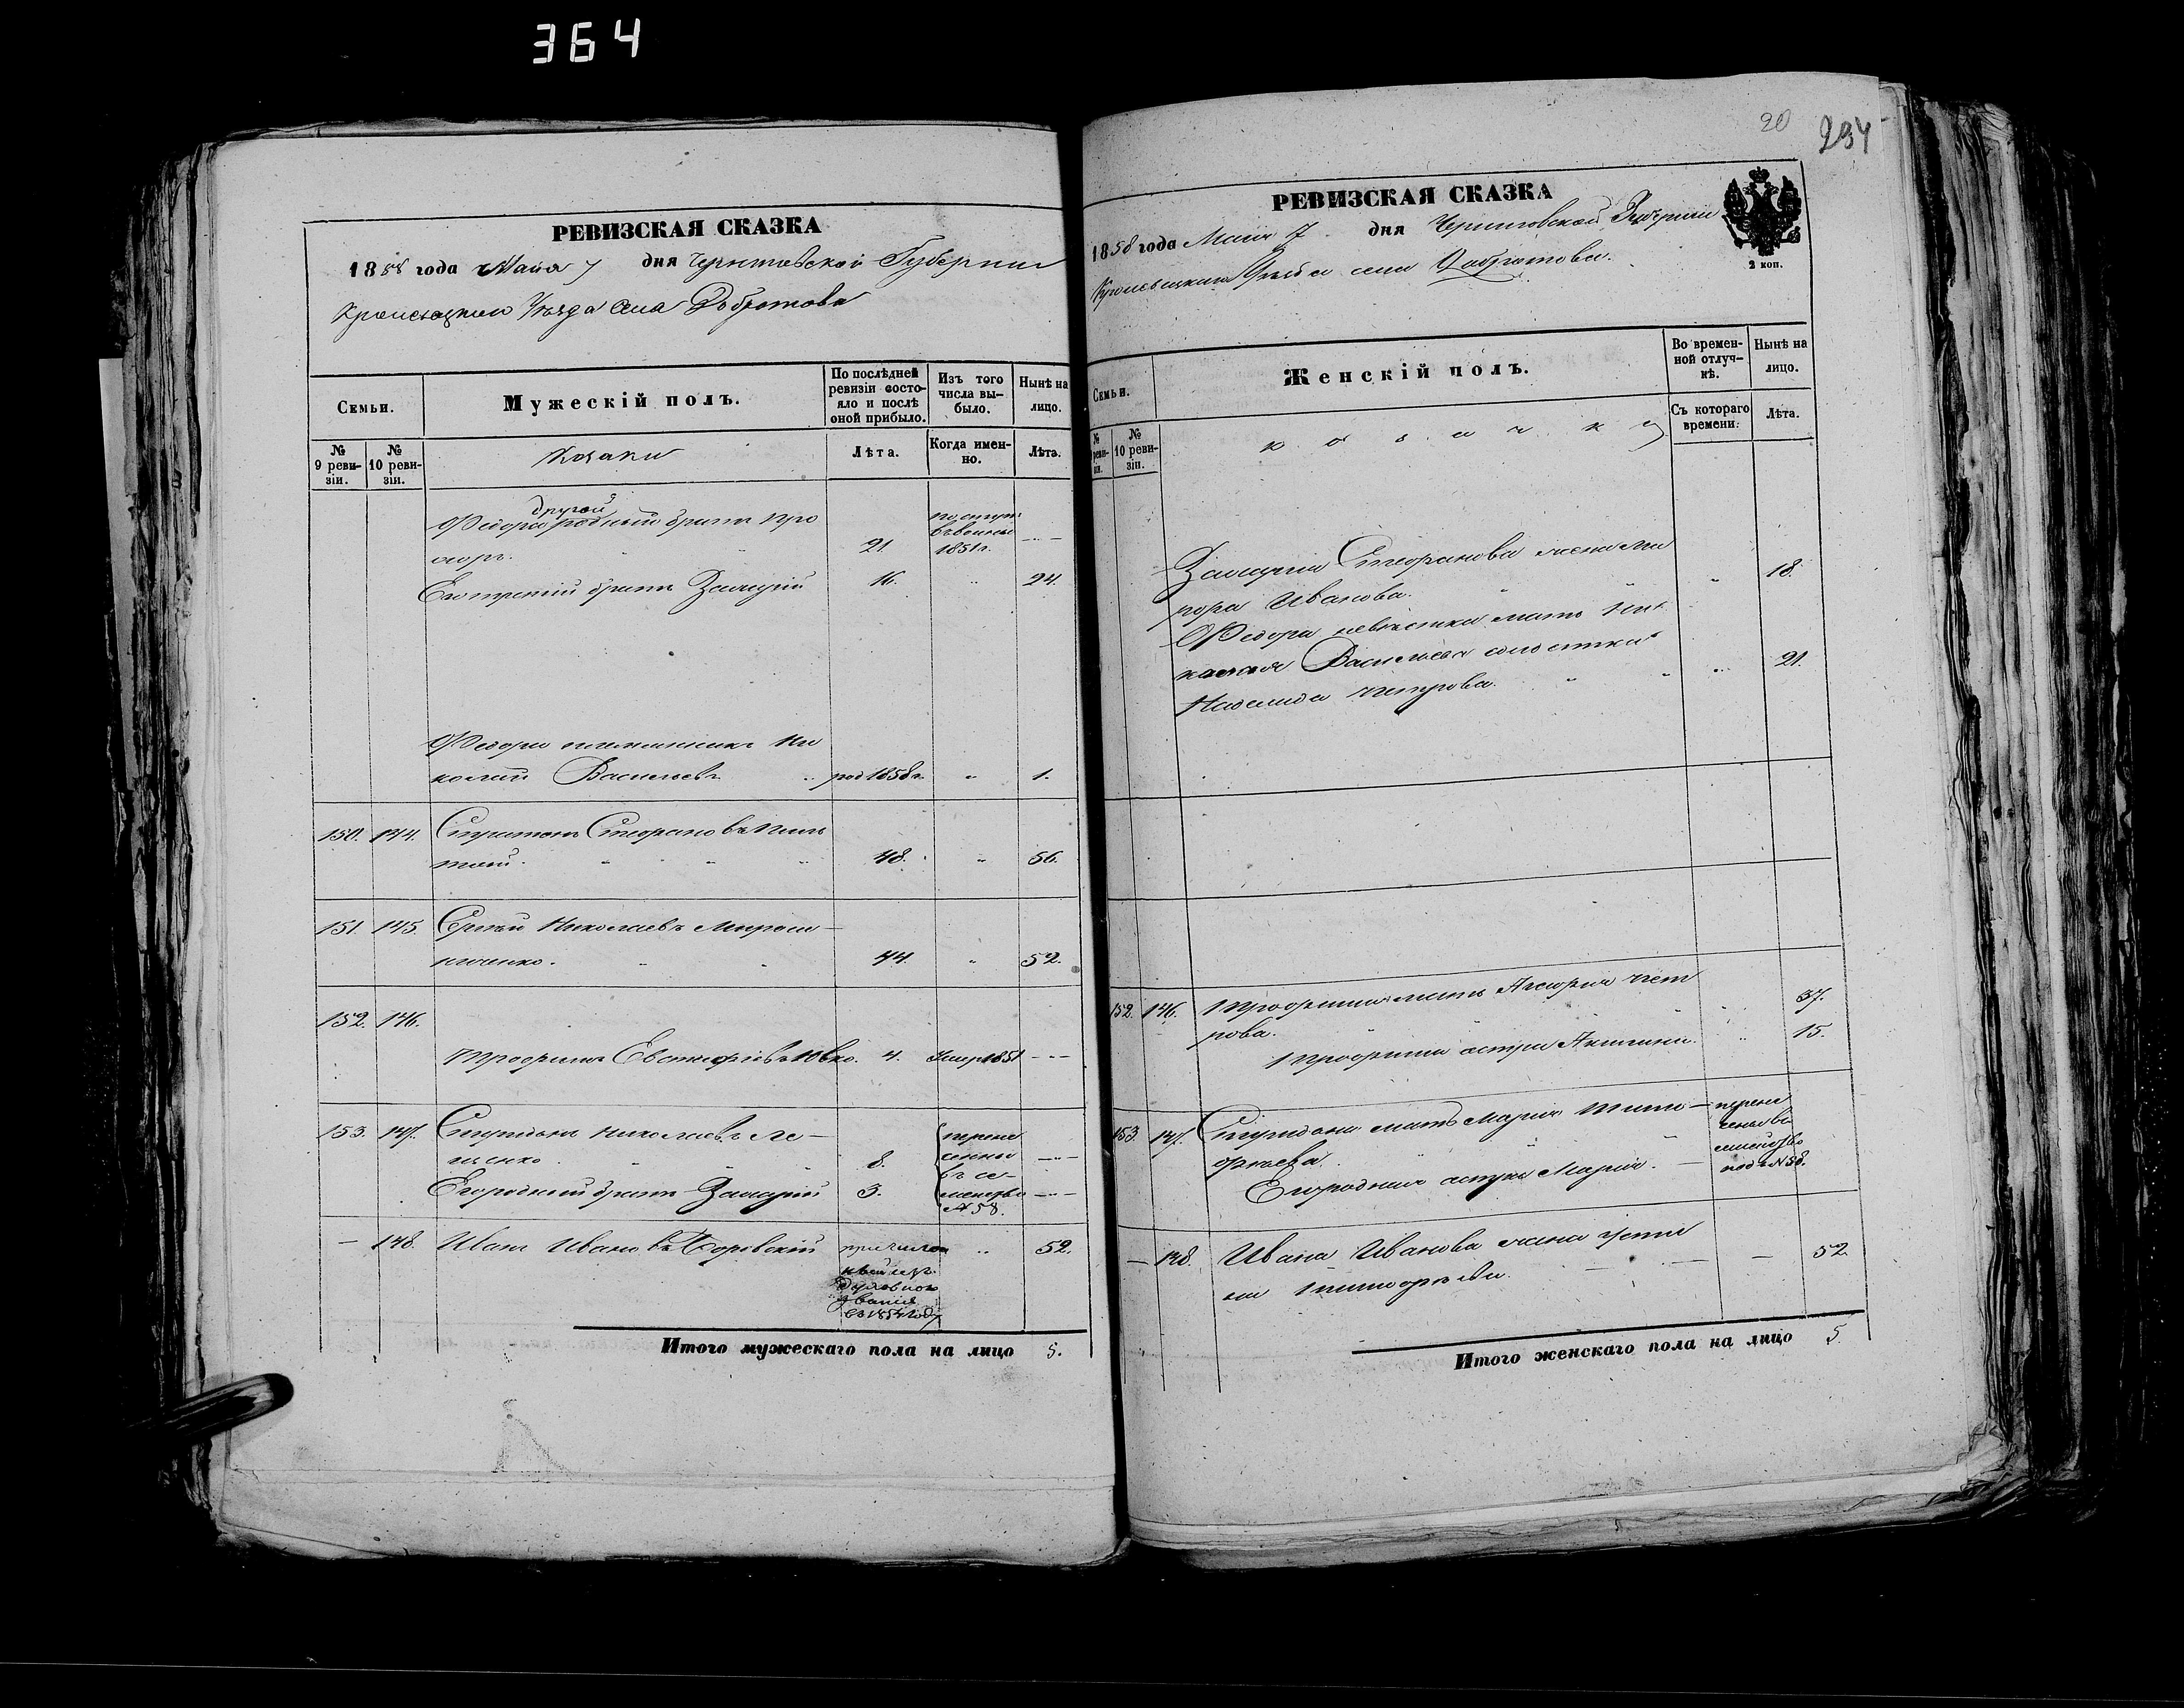 364
РЕВИЗСКАЯ СКАЗКА
1858 года Маія 7 дня Черниговской Губерніи
Кролевецкаго Уѣзда села Добротова
Семьи.
Мужескій полъ.
По послѣдней ревизіи состояло и послѣ оной прибыло.
Изъ того числа выбыло.
Нынѣ на лицо.
№ 9 ревизіи.
№ 10 ревизіи.
Козаки
Лѣта.
Когда именно.
Лѣта.
другой
Федора родный братъ Про
хоръ. 21 1851г.
Его третій братъ Захарій 16. 24.
Федора племянникъ Ни
колай Васильевъ род 1858г. 1.
150. 144. Спиридонъ Стефановъ
48. 56.
151. 145. Сергій Николаевъ Мирош-
ниченко. 44. 52.
152. 146.
Трофимъ Евстафіевъ Ювко. 4. Умер 1851
153. 147. Спиридонъ Николаевъ Ле-
щенко. 8. перене
сены
въ се-
мейство
№ 58.
Его родный братъ Захарій 3.
— 148. Иванъ Ивановъ Боровскій причисленъ 52.
духовнаго
званія
въ 1854 году
Итого мужескаго пола на лицо 5.
20
294
РЕВИЗСКАЯ СКАЗКА
1858 года Маія 7 дня Черниговской Губерніи
Кролевецкаго Уѣзда села Добротова.
2 коп.
Семьи.
Женскій полъ.
Во временной отлучкѣ.
Нынѣ на лицо.
№ ревизіи.
№ 10 ревизіи.
козачки
Съ котораго времени.
Лѣта.
Захарія Стефанова жена
Иванова. 18.
Федора невѣстка мать Ни
колая Васильева солдатка
Надежда Петрова. 21.
152. 146. Трофима мать Агафія Пет
рова. 37.
Трофима сестра Акилина. 15.
153. 147. Спиридона мать Марія Тимо-
фѣева.
Его родная сестра Марія.
перене
сены въ
семейство
подъ № 58.
— 148. Ивана Иванова жена
Тимофѣева. — 52
Итого женскаго пола на лицо 5.